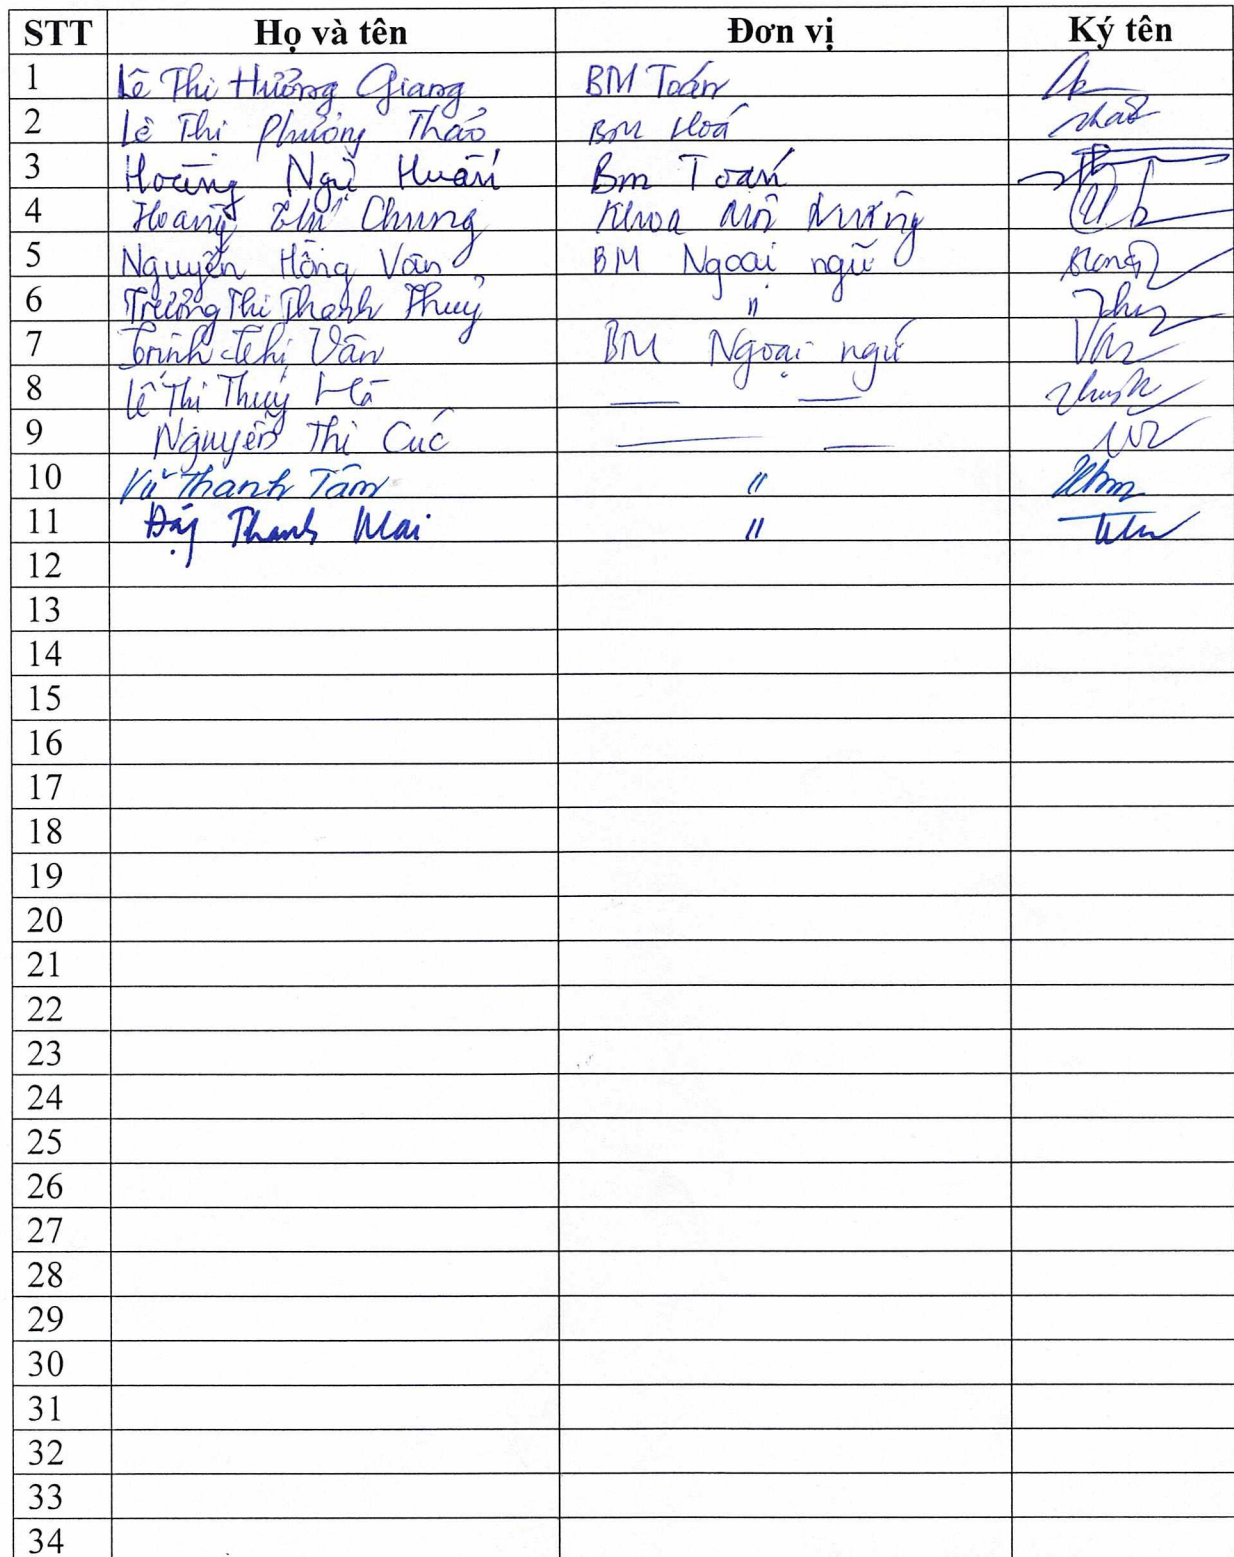 STT Họ và tên Đơn vị Ký tên
1 Lê Thị Hương Giang BM Toán
2 Lê Thị Phương Thảo BM Hoá
3 Hoàng Ngự Huấn Bm Toán
4 Hoàng Thị Chung Khoa Môi trường
5 Nguyễn Hồng Vân BM Ngoại ngữ
6 Trương Thị Thanh Thuỷ "
7 Trịnh Thị Vân BM Ngoại ngữ
8 Lê Thị Thuý Hà — —
9 Nguyễn Thị Cúc — —
10 Vũ Thanh Tâm "
11 Thanh Mai "
12
13
14
15
16
17
18
19
20
21
22
23
24
25
26
27
28
29
30
31
32
33
34